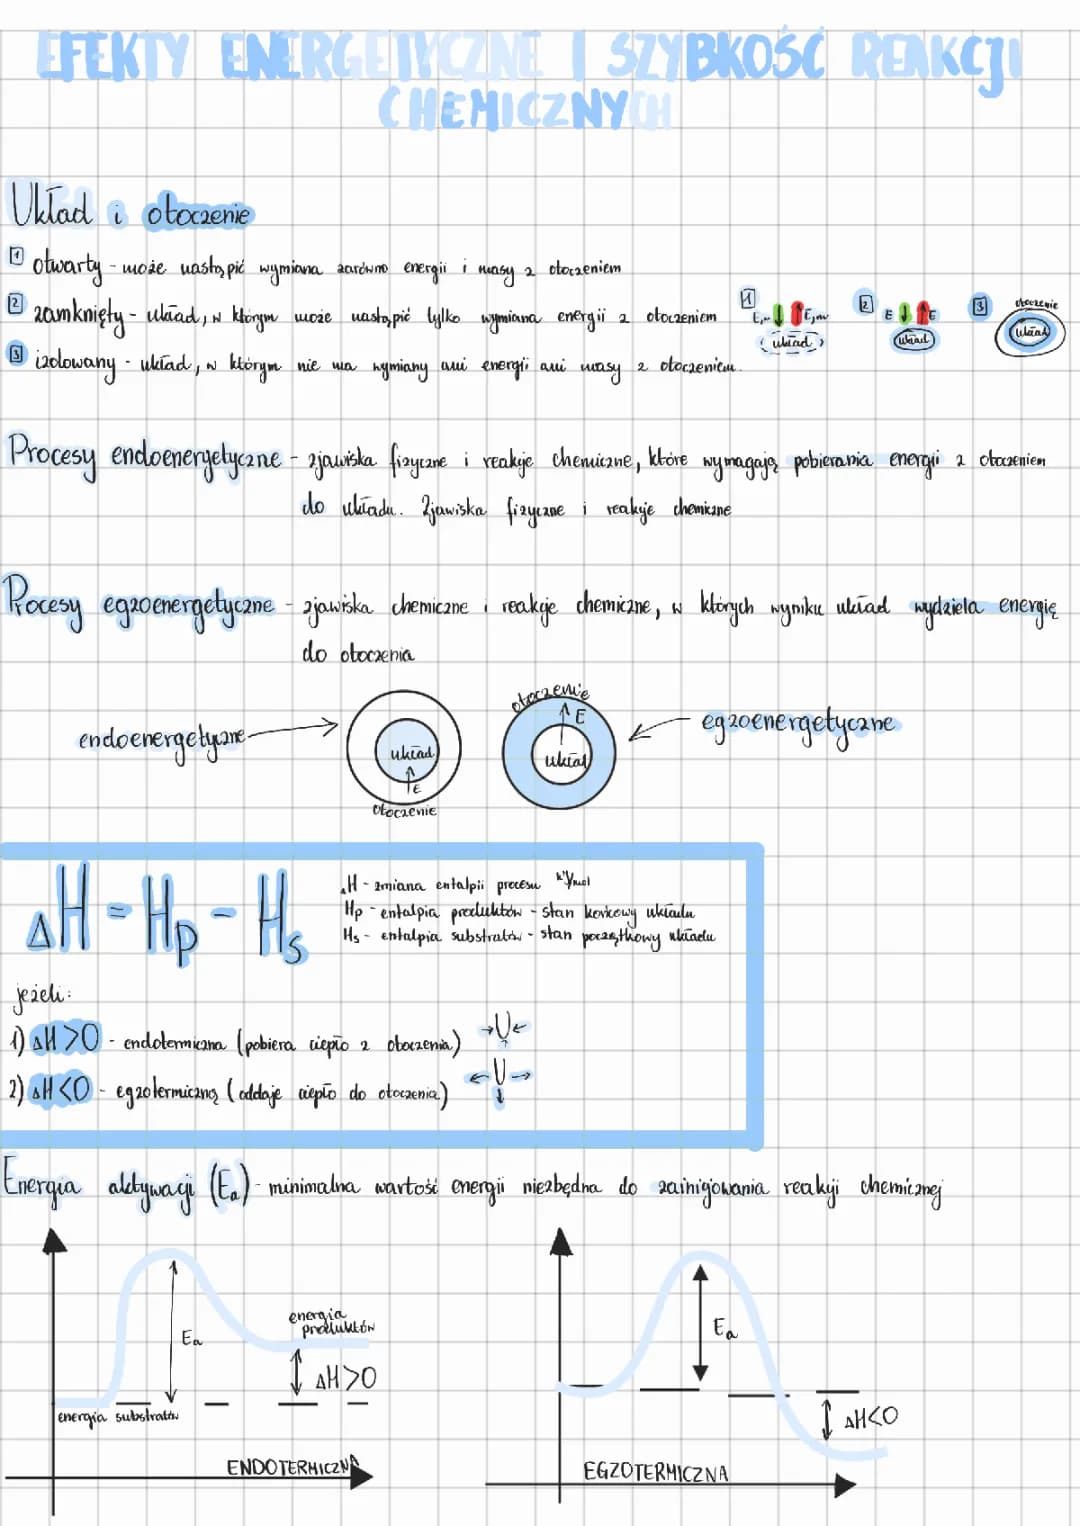 EFEKTY ENERGETYCZNE I SZYBKOŚĆ REAKCJI
CHEMICZNYCH
Układ i otoczenie
1 otwarty - może nastąpić wymiana zarówno energii i masy z otoczeniem
2 zamknięty - układ, w którym może nastąpić tylko wymiana energii z otoczeniem
3 izolowany - układ, w którym nie ma wymiany ani energii ani masy z otoczeniem.
1
E,m E,m
układ
2
E E
układ
3
otoczenie
układ
Procesy endoenergetyczne - zjawiska fizyczne i reakcje chemiczne, które wymagają pobierania energii z otoczeniem
do układu. Zjawiska fizyczne i reakcje chemiczne
Procesy egzoenergetyczne - zjawiska chemiczne i reakcje chemiczne, w których wyniku układ wydziela energię
do otoczenia
endoenergetyczne
układ
E
otoczenie
otoczenie
E
układ
egzoenergetyczne
ΔH = Hp - Hs
ΔH - zmiana entalpii procesu kJ/mol
Hp - entalpia produktów - stan końcowy układu
Hs - entalpia substratów - stan początkowy układu
jeżeli:
1) ΔH>0 - endotermiczna (pobiera ciepło z otoczenia) →U←
2) ΔH<0 - egzotermiczną (oddaje ciepło do otoczenia) ←U→
Energia aktywacji (Ea) - minimalna wartość energii niezbędna do zainicjowania reakcji chemicznej
Ea
energia
produktów
ΔH>0
energia substratów
ENDOTERMICZNA
Ea
ΔH<0
EGZOTERMICZNA